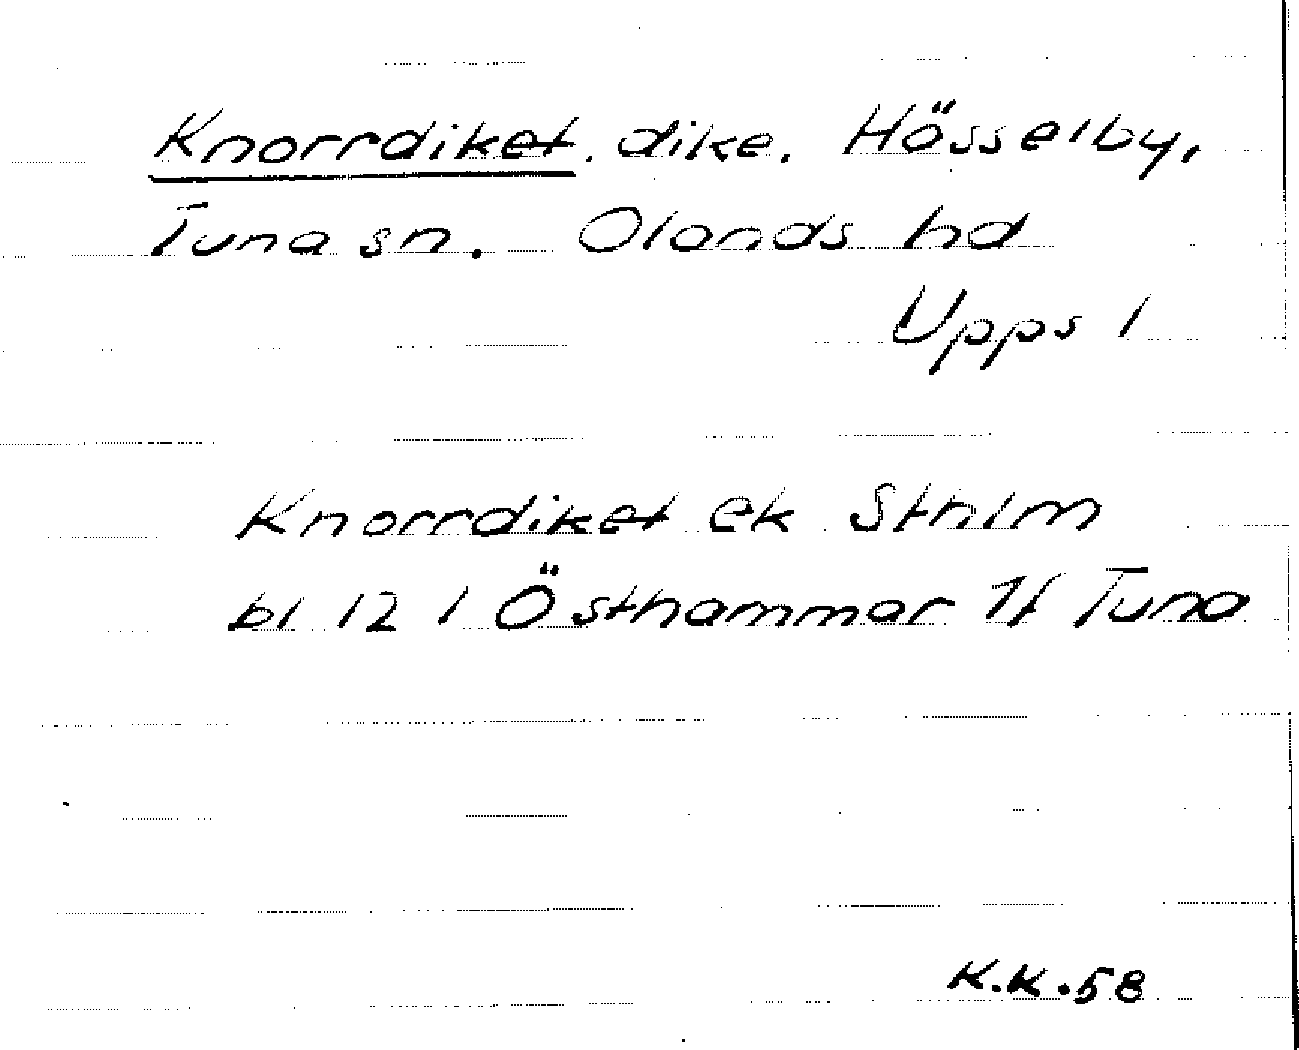 Knorrdiket, dike. Hösselby,
Tuna sn. Olands hd
Upps l
Knorrdiket ek Sthlm
bl 12 l Östhammar Tf Tuna
K.K.58